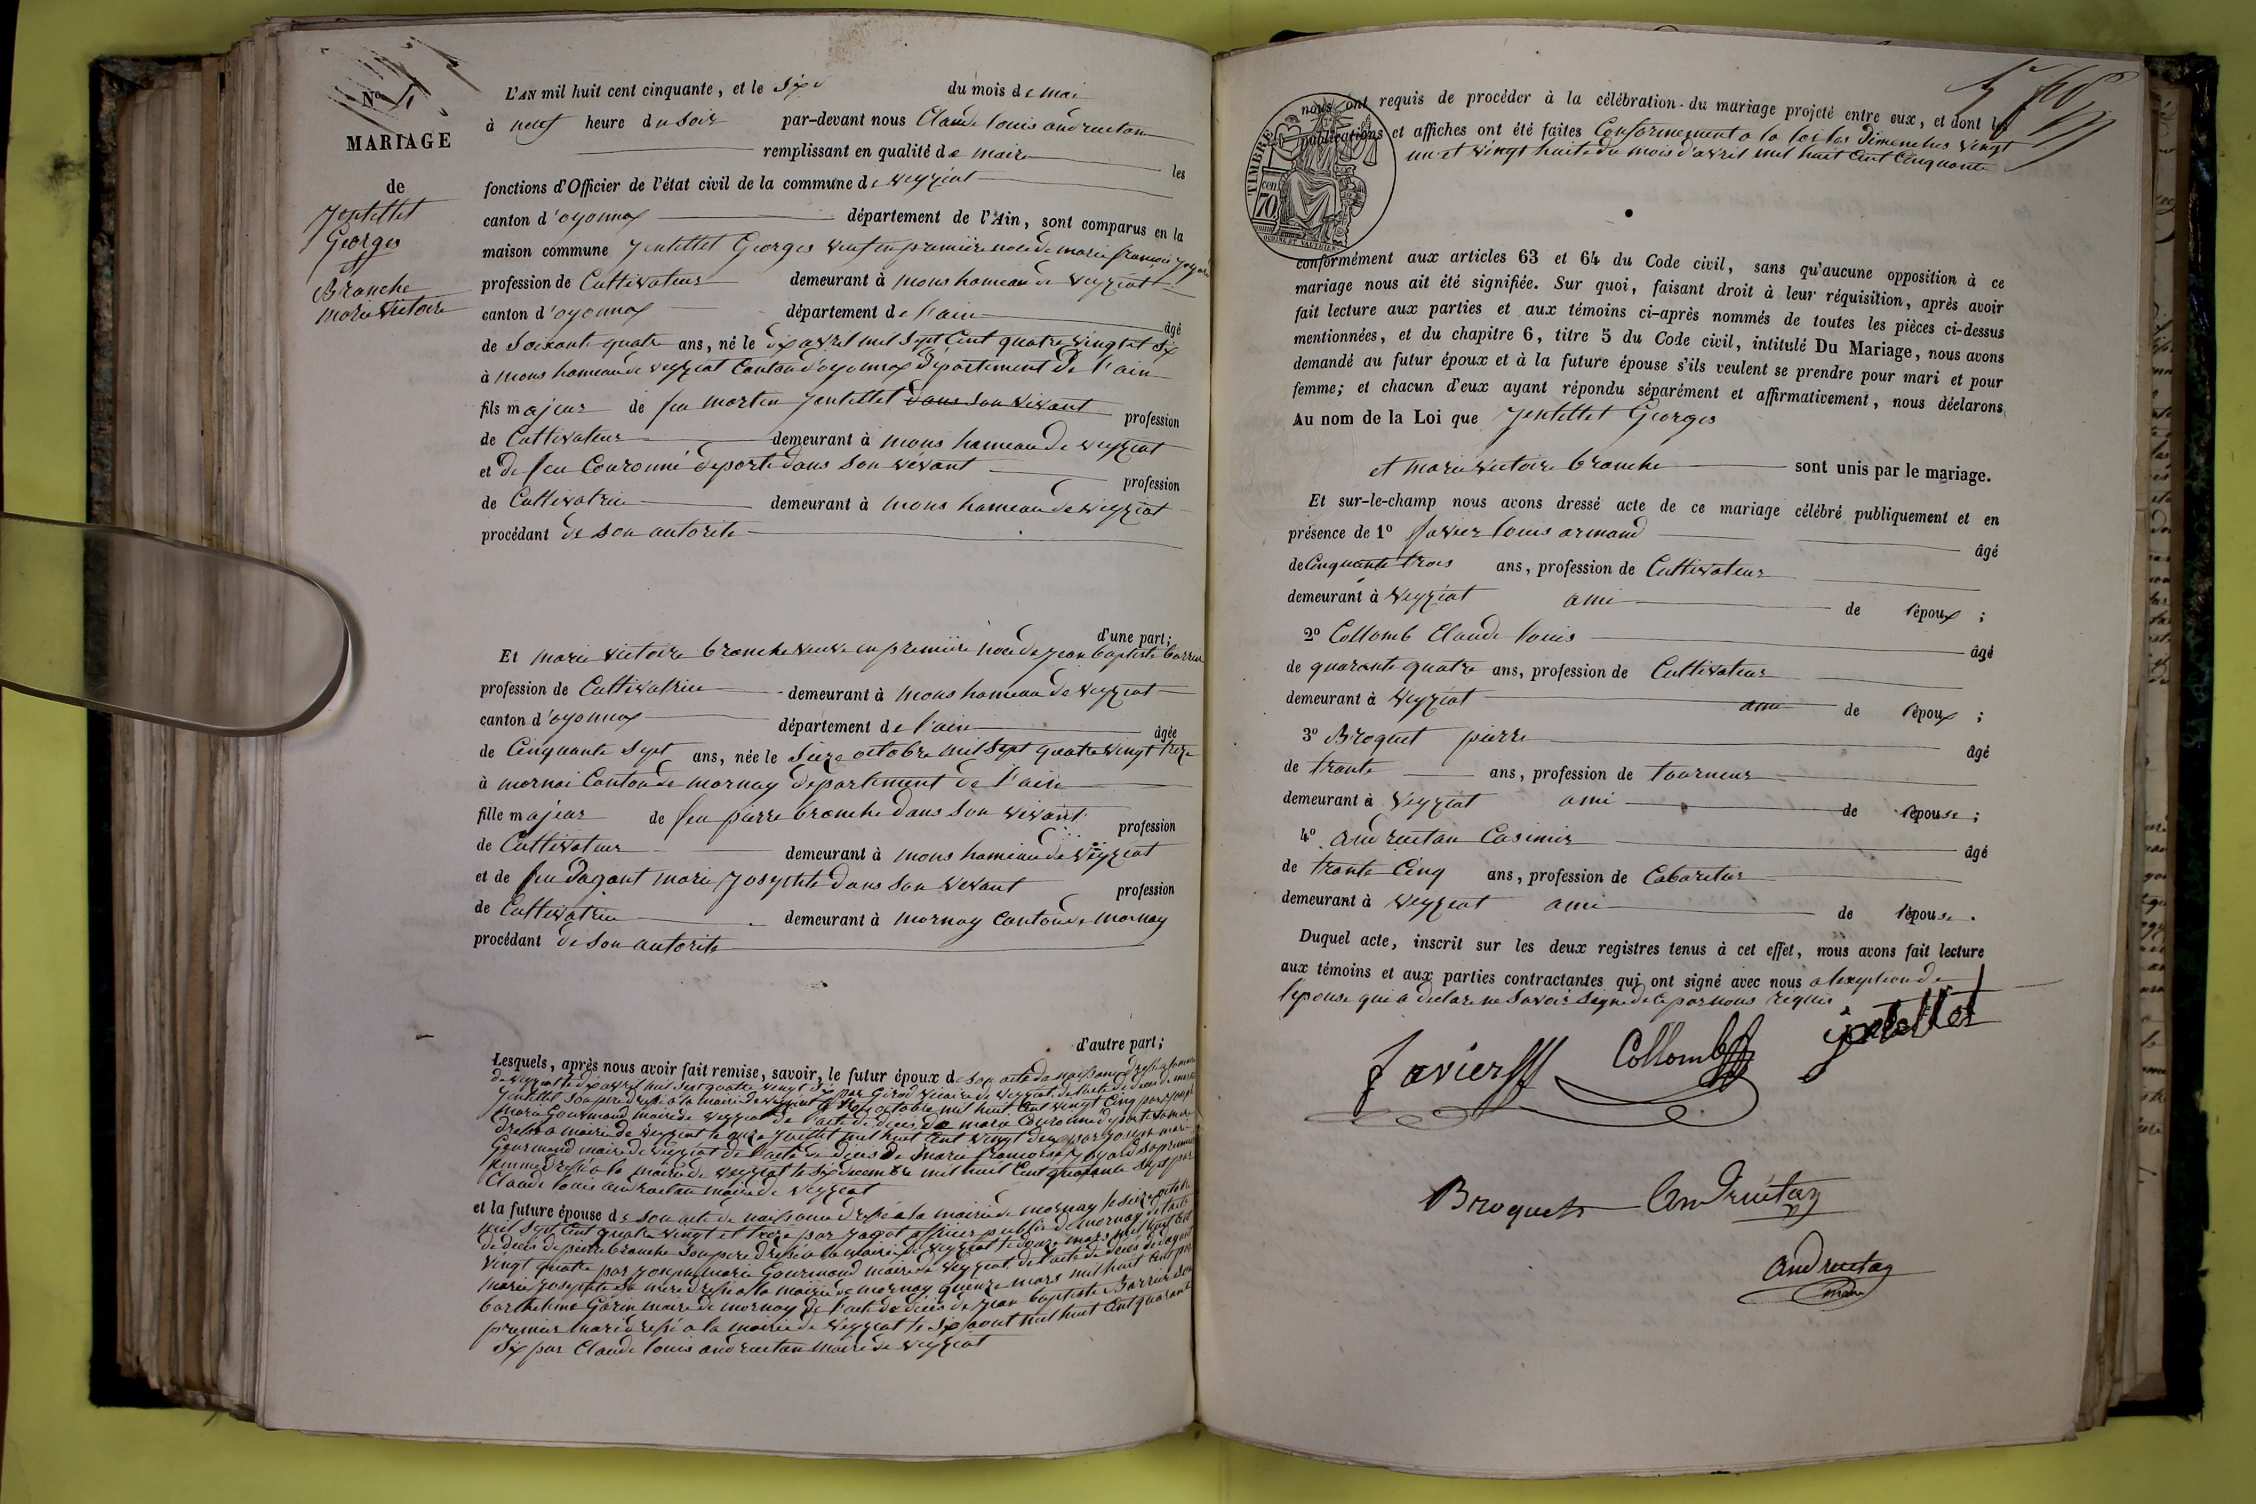 Nº 4
MARIAGE
de
Jentellet
Georges
Branche
marie victoire
L'AN mil huit cent cinquante, et le six du mois de mai
à neuf heure du soir par-devant nous Claude louis andruetan
remplissant en qualité de maire les
fonctions d'Officier de l'état civil de la commune de veyziat
canton d'oyonnax département de l'Ain, sont comparus en la
maison commune Jentellet Georges veuf en première noce de marie françoise
profession de Cultivateur demeurant à mons hameau de veyziat
canton d'oyonnax département de l'ain âgé
de soixante quatre ans, né le dix avril mil sept cent quatre vingt et six
à mons hameau de veyziat Canton d'oyonnax département de l'ain
fils majeur de feu martin Jentellet dans son vivant profession
de Cultivateur demeurant à mons hameau de veyziat
et de feu Couronné deporte dans son vivant profession
de Cultivatrice demeurant à mons hameau de veyziat
procédant de son autorité
d'une part;
Et marie victoire branche veuve en première noce de jean baptiste barrur
profession de Cultivatrice demeurant à mons hameau de veyziat
canton d'oyonnax département de l'ain âgée
de Cinquante sept ans, née le seize octobre mil sept quatre vingt treze
à mornai Canton de mornay département de l'ain
fille majeur de feu pierre branche dans son vivant profession
de Cultivateur demeurant à mons hameau de veyziat
et de feu dagant marie Josephte dans son vivant profession
de Cultivatrice demeurant à mornay Canton de mornay
procédant de son autorité
d'autre part;
Lesquels, après nous avoir fait remise, savoir, le futur époux de son acte de naissance dressé a la mairie
de veyziat le dix avril mil sept quatre vingt six par Girod vicaire de veyziat, de l'acte de décès de martin
Jentellet son père dressé a la mairie de veyziat le octobre mil huit Cent vingt Cinq par joseph
marie Gourmand maire de veyziat de l'acte de décès de marie Couronné deporte sa mère
dressé a mairie de veyziat le onze Juillet mil huit Cent vingt deux par joseph marie
Gourmand maire de veyziat de l'acte de décès de marie françoise sa première
femme dressé a la mairie de veyziat le six decembre mil huit Cent quarante sept par
Claude louis andruetan maire de veyziat
et la future épouse de son acte de naissance dressé a la mairie de mornay le seize octobre
mil sept Cent quatre vingt et treze par Jagot officier public de mornay de l'acte
de décès de pierre branche son père dressé a la mairie de veyziat le douze mars mil huit Cent
vingt quatre par joseph marie Gourmand maire de veyziat, de l'acte de décès de dagant
marie josephte sa mère dressé a la mairie de mornay quinze mars mil huit Cent par
barthelme Garin maire de mornay de l'acte de décès de jean baptiste barrur son
premier mari dressé a la mairie de veyziat le six aout mil huit Cent quarante
six par Claude louis andruetan maire de veyziat
nous ont requis de procéder à la célébration du mariage projeté entre eux, et dont les
publications et affiches ont été faites Conformement a la loi les dimanches vingt
un et vingt huite du mois d'avril mil huit Cent Cinquante
TIMBRE
70 cen
conformément aux articles 63 et 64 du Code civil, sans qu'aucune opposition à ce
mariage nous ait été signifiée. Sur quoi, faisant droit à leur réquisition, après avoir
fait lecture aux parties et aux témoins ci-après nommés de toutes les pièces ci-dessus
mentionnées, et du chapitre 6, titre 5 du Code civil, intitulé Du Mariage, nous avons
demandé au futur époux et à la future épouse s'ils veulent se prendre pour mari et pour
femme; et chacun d'eux ayant répondu séparément et affirmativement, nous déclarons
Au nom de la Loi que Jentellet Georges
et marie victoire branche sont unis par le mariage.
Et sur-le-champ nous avons dressé acte de ce mariage célébré publiquement et en
présence de 1º favier louis armand âgé
de Cinquante trois ans, profession de Cultivateur
demeurant à veyziat ami de l'époux ;
2º Collomb Claude louis âgé
de quarante quatre ans, profession de Cultivateur
demeurant à veyziat ami de l'époux ;
3º Broquet pierre âgé
de trante ans, profession de tourneur
demeurant à veyziat ami de l'épouse ;
4º andruetan Casimir âgé
de trante Cinq ans, profession de Cabaretier
demeurant à veyziat ami de l'épouse.
Duquel acte, inscrit sur les deux registres tenus à cet effet, nous avons fait lecture
aux témoins et aux parties contractantes qui ont signé avec nous a l'exeption de
l'epouse qui a déclaré ne savoir signé de ce par nous requis
favier Collomb jentellet
Broquet Andruétan
andruetan
maire